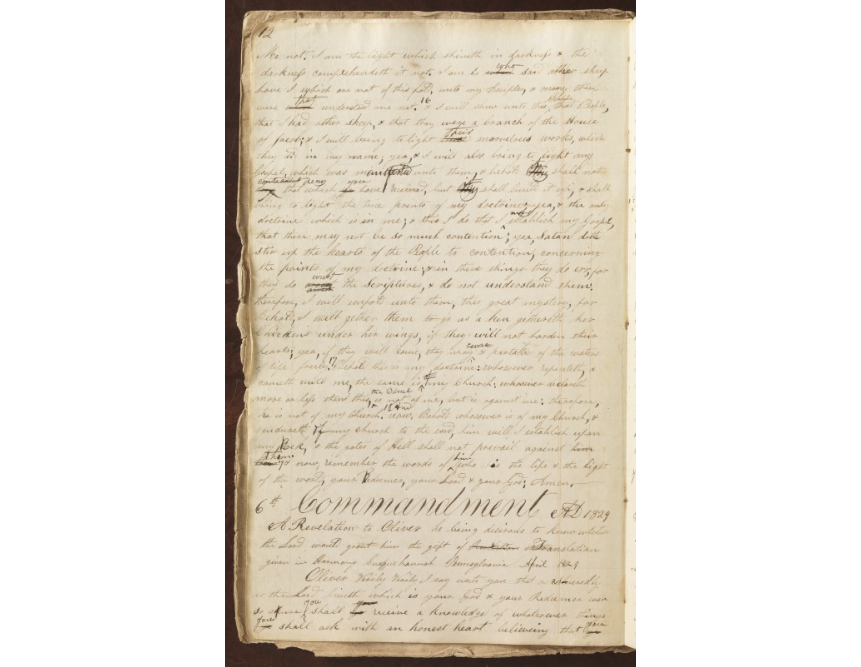 12
Me not. I am the light which shineth in darkness & the
darkness comprehendeth it not. I am he who said other sheep
have I which are not of this fold, unto my disciples, & many there
were that understood me not. 16 & I will shew unto this People,
that I had other sheep, & that they were a branch of the House
of Jacob; & I will bring to light their marvelous works, which
they did in my name, yea, & I will also bring to light my
Gospel, which was ministered unto them, & behold they shall not
deny that which you have received, but shall build it up, & shall
bring to light the true points of my doctrine, yea, & the only
doctrine which is in me; & this I do that I may establish my Gospel,
that there may not be so much contention; yea, Satan doth
stir up the hearts of the People to contention, concerning
the points of my doctrine; & in these things they do err, for
they do wrest the Scriptures, & do not understand them.
therefore, I will unfold unto them, this great mystery, for
behold, I will gether them to go as a hen gethereth her
Chickens under her wings, if they will not harden their
hearts; yea, if they will come, they may & partake of the waters
of life freely. 17 Behold this is my doctrine: whosoever repenteth, &
cometh unto me, the same is my Church; whosoever declareth
more or less than this, the same is not of me, but is against me: therefore,
he is not of my Church. 18 & now, Behold whosoever is of my Church, &
endureth of my church to the end, him will I establish upon
my Rock, & the gates of Hell shall not prevail against
them & now, remember the words of him who is the life & the light
of the world, your Redeemer, your Lord & your God; Amen.
6th Commandment AD 1829
A Revelation to Oliver he being desirous to know whether
the Lord would grant him the gift of Translation
given in Harmony Susquehannah Pennsylvania April 1829
Oliver Verily Verily I say unto you that a suredly
as the Lord liveth which is your God & your Redeemer even
so shure shall you receive a knowledge of whatsoever things
you shall ask with an honest heart believeing that you